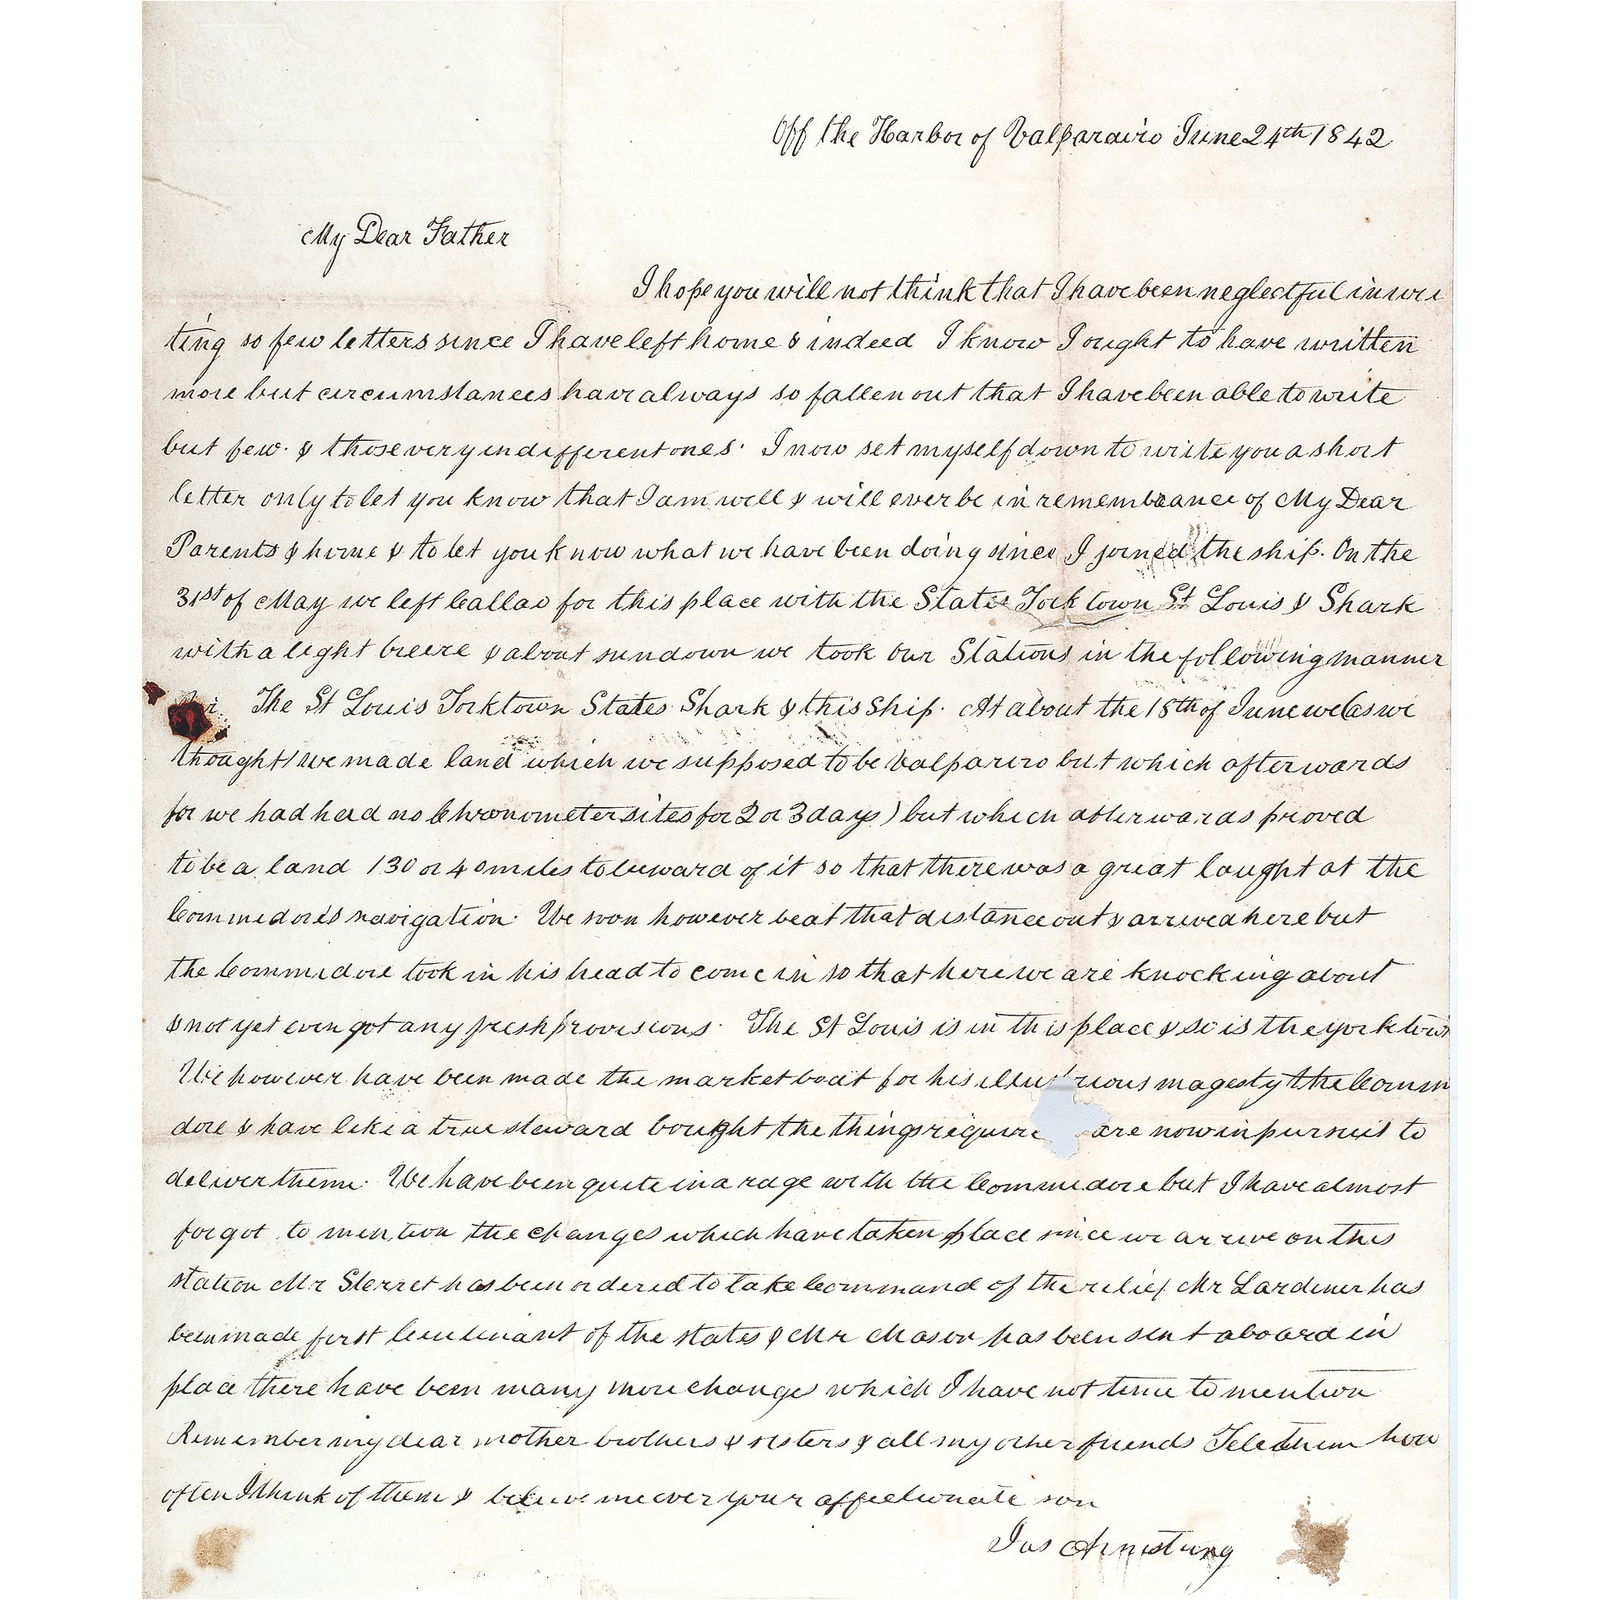 Off the Harbor of Valparairo June 24th 1842
My Dear Father
I hope you will not think that I have been neglectful in wri
ting so few letters since I have left home & indeed I know I ought to have written
more but circumstances have always so fallen out that I have been able to write
but few. & those very indifferent ones. I now set myself down to write you a short
letter only to let you know that I am well & will ever be in remembrance of My Dear
Parents & home & to let you know what we have been doing since I joined the ship. On the
31st of May we left Callao for this place with the States Yorktown St Louis & Shark
with a light breeze & about sundown we took our Stations in the following manner
The St Louis Yorktown States Shark & this Ship. At about the 18th of June we (as we
thought) we made land which we supposed to be Valpariro but which afterwards
for we had had no Chronometer sites for 2 or 3 days) but which afterwards proved
to be a land 130 or 40 miles to leward of it so that there was a great laught at the
Commedore's navigation. We soon however beat that distance out & arrived here but
the Commedore took in his head to come in so that here we are knocking about
& not yet even got any fresh provisions. The St Louis is in this place & so is the yorktown
We however have been made the market boat for his illustrious magesty the Comm
dore & have like a true steward bought the things require are now in pursuit to
deliver them. We have been quite in a rage with the Commedore but I have almost
forgot to mention the changes which have taken place since we arrive on this
station Mr Sterret has been ordered to take Command of the relief Mr Lardener has
been made first lieutenant of the states & Mr Mason has been sent aboard in
place there have been many more changes which I have not time to mention
Remember my dear mother brothers & sisters & all my other friends Tele them how
often I think of them & believe me ever your affectionate son
Jas Armstrong